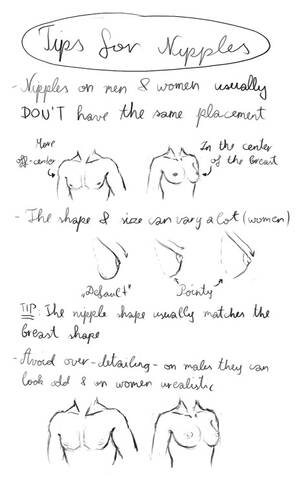 Tips for Nipples
- Nipples on men & women usually
DON'T have the same placement
More
off-center
In the center
of the breast
- The shape & size can vary a lot (women)
„Default"
Pointy
TIP: The nypple shape usually matches the
breast shape
- Avoid over-detailing - on males they can
look odd & on women urealistic